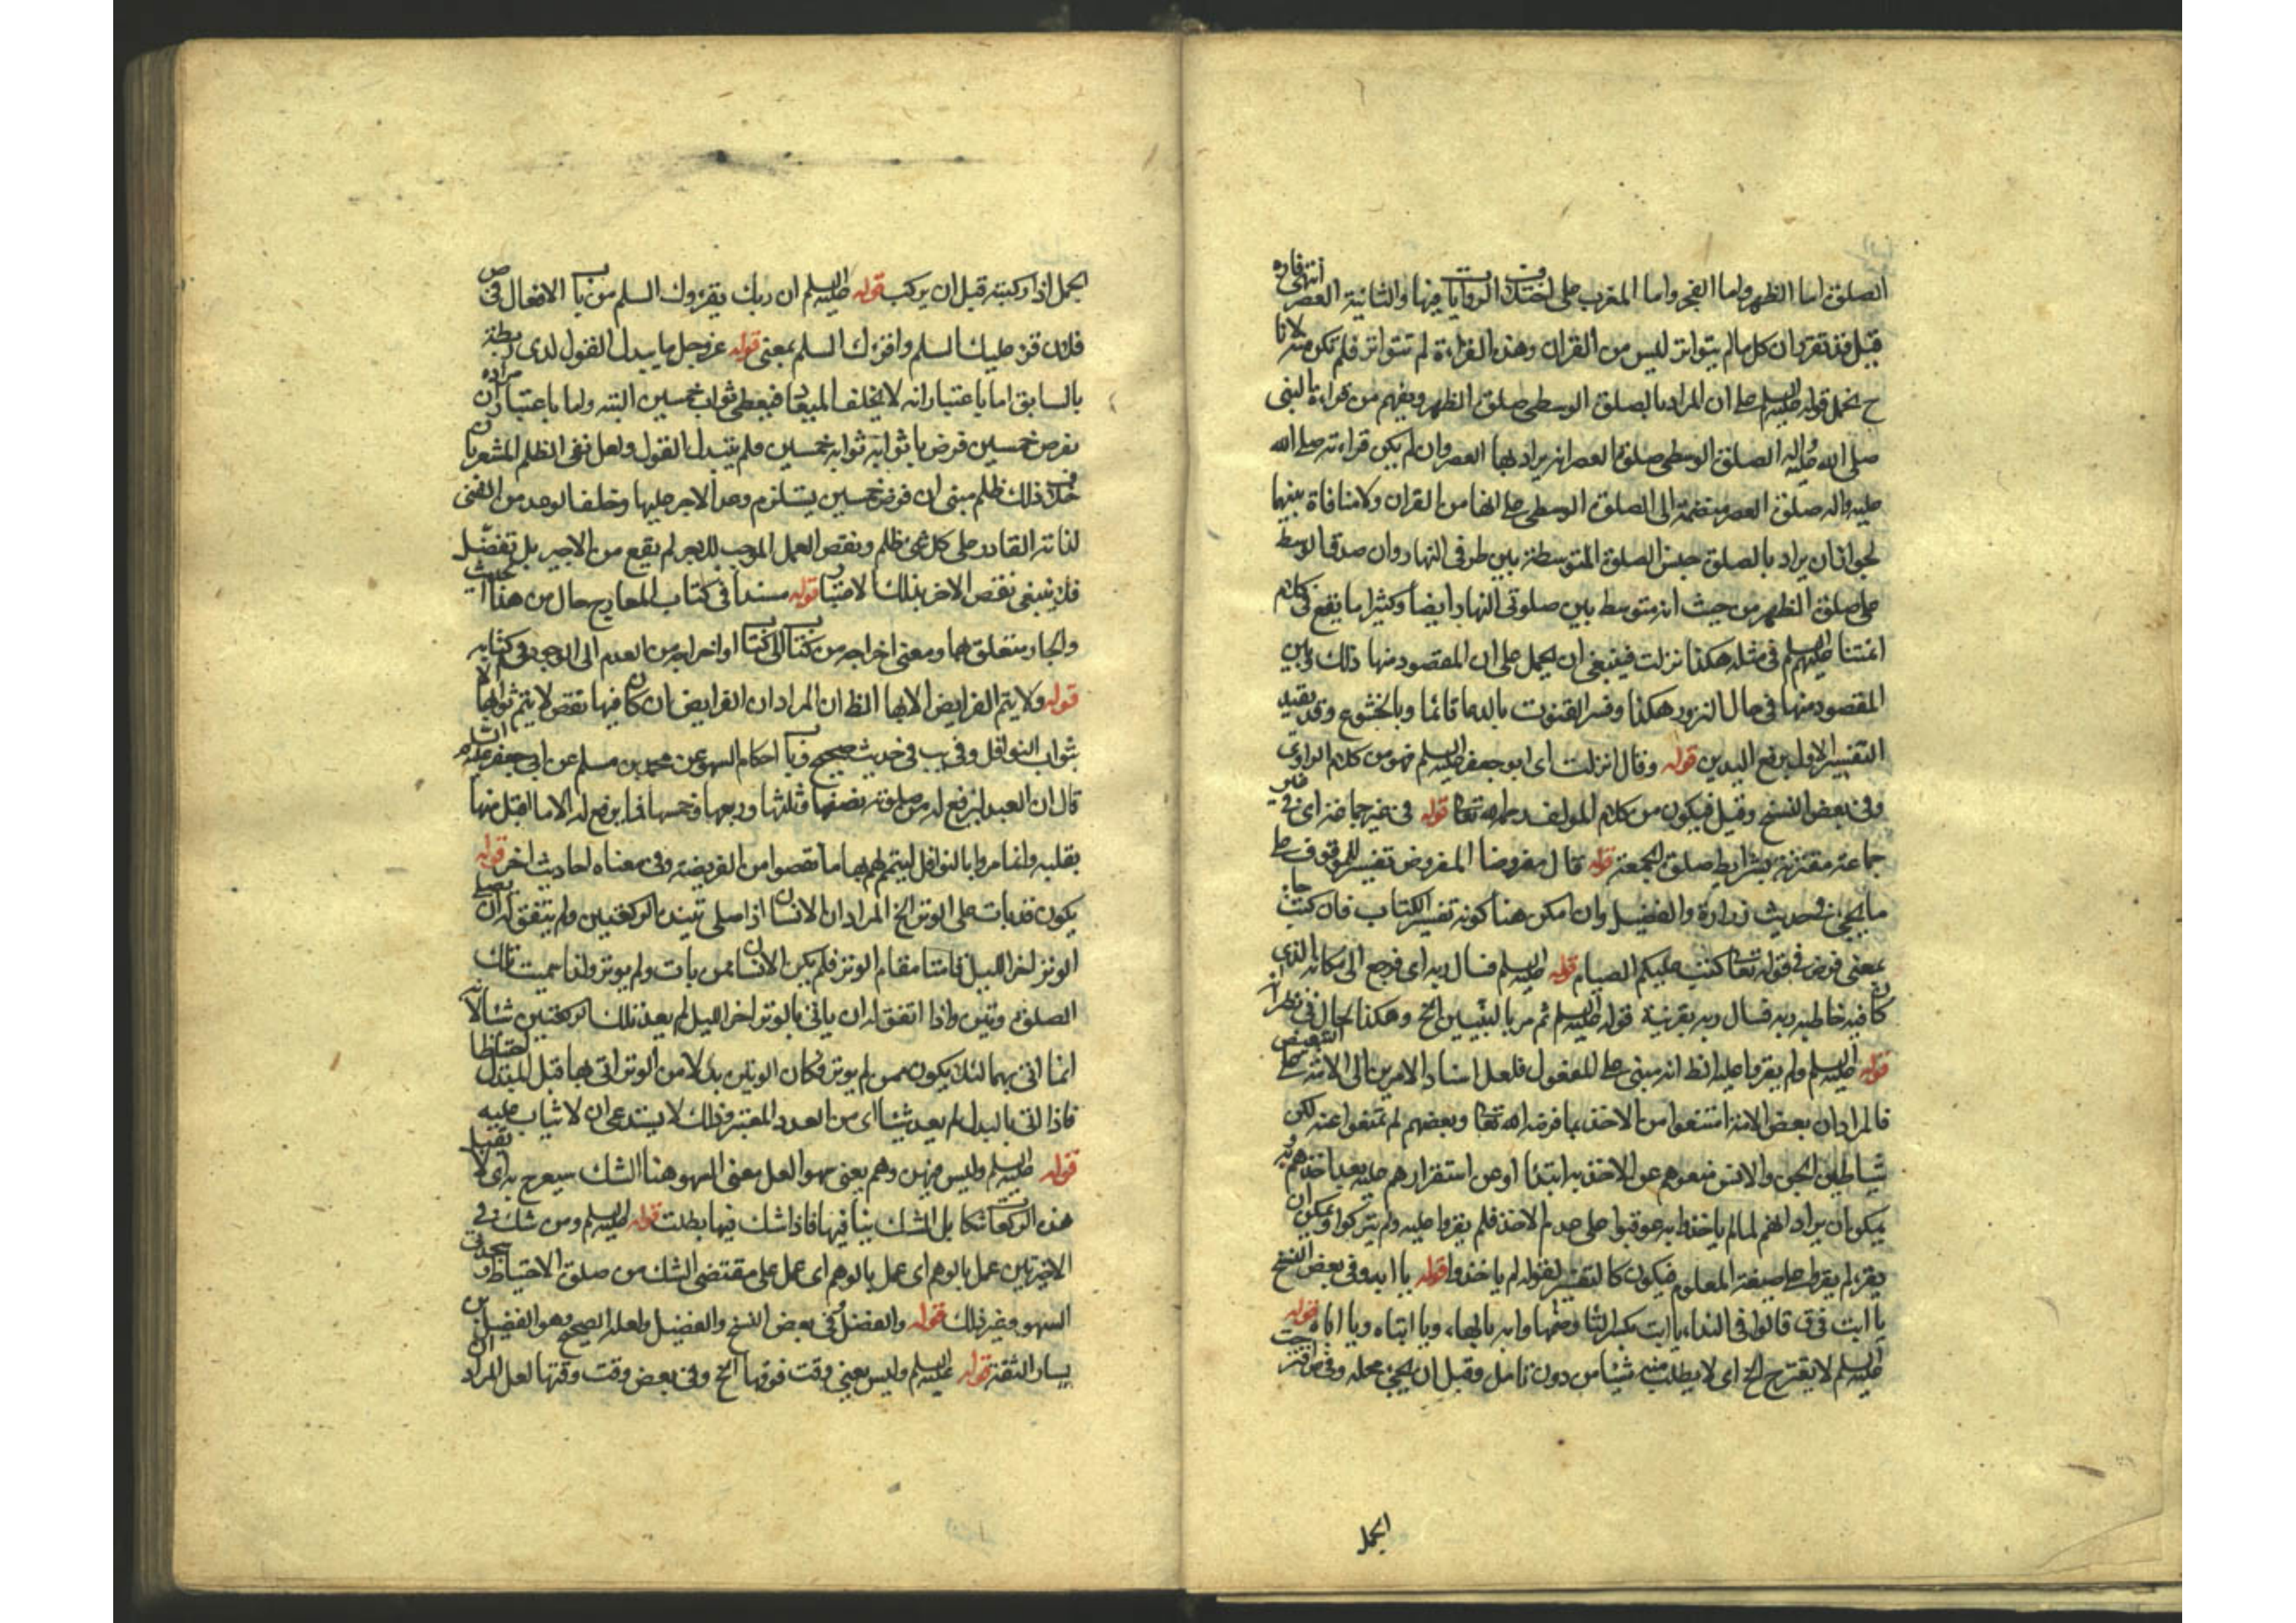 الصلوة اما الظهر واما الفجر واما المغرب على اختلاف الروايات فيها والثانية العصر انتهى
قيل قد تقرر ان كل ما لم يتواتر ليس من القران وهذه القراءة لم تتواتر فلم تكن منه لانا
ح نحمل قوله عليه السلم على ان المراد بالصلوة الوسطى صلوة الظهر ويفهم من قراءة النبى
صلى الله عليه واله الصلوة الوسطى صلوة العصر انه يراد بها العصر وان لم يكن قراءته صلى الله
عليه واله صلوة العصر منضمة الى الصلوة الوسطى على انها من القران ولا منافاة بينهما
لجواز ان يراد بالصلوة جنس الصلوة المتوسطة بين طرفى النهار وان صدق الوسط
على صلوة الظهر من حيث انه متوسط بين صلوتى النهار ايضا وكثيرا ما يقع فى كلام
ائمتنا عليهم السلم فى مثله هكذا نزلت فينبغى ان يحمل على ان المقصود منها ذلك وبين
المقصود منها فى حال النزول هكذا وفسر القنوت بالدعا قائما وبالخشوع وقد يقيد
التفسير الاول برفع اليدين قوله وقال انزلت اى ابو جعفر عليه السلم فهو من كلام الراوى
وفى بعض النسخ وقيل فيكون من كلام المولف رحمه الله تعالى قوله فى غير جماعة اى فى غير
جماعة مقترنة بشرايط صلوة الجمعة قوله قال مفروضا المفروض تفسير للموقوت على
ما يجئ فى حديث زرارة والفضيل وان امكن هنا كونه تفسير الكتاب فان كتب جاء
بمعنى فرض فى قوله تعالى كتب عليكم الصيام قوله عليه السلم فسال ربه اى فرجع الى مكانه الذى
كان فيه خاطبه ربه فسال ربه بقرينة قوله عليه السلم ثم مر بالنبيين الخ وهكذا الحال فى نظرائه
قوله عليه السلم ولم يقروا عليه الظ انه مبنى على للمفعول فلعل اسناد الامرين الى الامة على التبعيض
فالمراد ان بعض الامة امتنعوا من الاخذ بما فرضه الله تعالى وبعضهم لم يمتنعوا عنه لكن
شياطين الجن والانس منعوهم عن الاخذ به ابتداء او عن استقرارهم عليه بعد اخذهم به و
يمكن ان يراد انهم لما لم ياخذوا به عوقبوا على عدم الاخذ فلم يقروا عليه ولم يتركوا ويمكن ان
يقرء لم يقر على صيغة المعلوم فيكون كالتفسير لقوله لم ياخذوا قوله يا ابه وفى بعض النسخ
يا ابت فى ق قالوا فى النداء يا ابت بكسر التاء وضمها وابه بالهاء ويا ابتاه ويا اباه قوله
عليه السلم لا يقترح الخ اى لا يطلب منه شيئا من دون تامل وقبل ان يجئ محله وفى ص اقترحت
الجمل
الجمل اذا ركبته قبل ان يركب قوله عليه السلم ان ربك يقرؤك السلم من باب الافعال فى ص
فلان قرء عليك السلم واقرءك السلم بمعنى قوله عز وجل ما يبدل القول لدى
بالسابق اما باعتبار انه لا يخلف الميعاد فيعطى ثواب خمسين البتة واما باعتبار ان مراده
بفرض خمسين فرض ما ثوابه ثواب خمسين ولم يتبدل القول ولعل نفى الظلم المشعر بان
خلاف ذلك ظلم مبنى ان فرض خمسين يستلزم وعد الاجر عليها وخلف الوعد من الغنى
لذاته القادر على كل شئ ظلم ونقص العمل الموجب للاجر لم يقع من الاجير بل تفضل
فلا ينبغى نقص الاجر بذلك الاعتبار قوله مسندا فى كتاب المعارج حال من هذا الحديث
والجار متعلق بها ومعنى اخراجه من كتاب الى كتاب او اخراجه من العدم الى الوجود فى كتابه
قوله ولا يتم الفرايض الا بها الظ ان المراد ان الفرايض ان كان فيها نقص لا يتم ثوابها الا
بثواب النوافل وفى يب فى حديث صحيح فى باب احكام السهو عن محمد بن مسلم عن ابى جعفر عليه السلم
قال ان العبد ليرفع له من صلوته نصفها وثلثها وربعها وخمسها فما يرفع له الا ما اقبل منها
بقلبه وانما امروا بالنوافل ليتم لهم بها ما نقصوا من الفريضة وفى معناه احاديث اخر قوله
يكون قد بات على الوتر الخ المراد ان الانسان اذا صلى تينك الركعتين ولم يتفق له ان يصلى
الوتر اخر الليل قامتا مقام الوتر فلم يكن الانسان ممن بات ولم يوتر ولذا سميت تلك
الصلوة وتيرة واذا اتفق له ان ياتى بالوتر اخر الليل لم يعد تلك الركعتين شيئا لانه
انما اتى بهما لئلا يكون ممن لم يوتر فكان الوتيرة بدلا من الوتر اتى بها قبل المبدل احتياطا
فاذا اتى بالبدل لم يعد شيئا اى من العدد المعتبر وذلك لا يستدعى ان لا يثاب عليه
قوله عليه السلم وليس فيهن وهم يعنى سهو العل معنى السهو هنا الشك سيعرج به اى لا تقبل
هذه الركعات شكا بل الشك ينافيها فاذا شك فيها بطلت قوله عليه السلم ومن شك فى
الاخيرتين عمل بالوهم اى عمل بالوهم اى عمل على مقتضى الشك من صلوة الاحتياط وسجدتى
السهو وغير ذلك قوله والفضل وفى بعض النسخ والفضيل ولعله الصحيح وهو الفضيل بن
يسار الثقة قوله عليه السلم وليس يعنى وقت فوتها الخ وفى بعض وقت وقتها لعل المراد ان